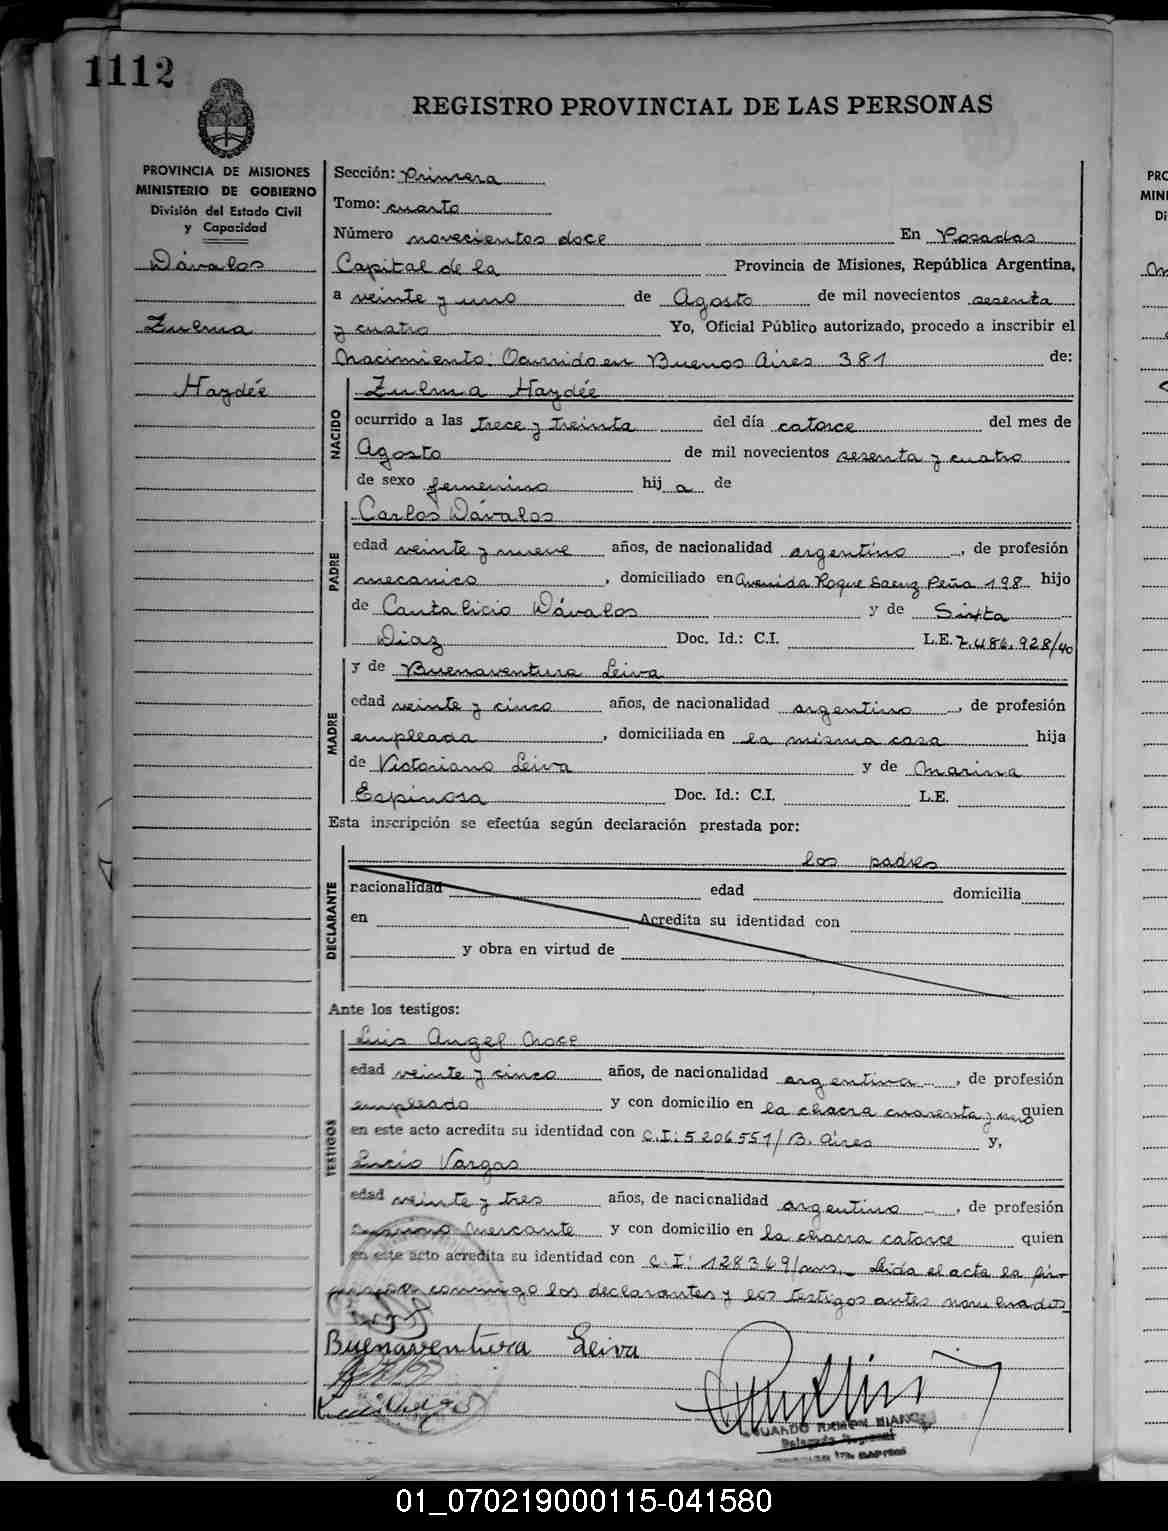 1112
REGISTRO PROVINCIAL DE LAS PERSONAS
PROVINCIA DE MISIONES
MINISTERIO DE GOBIERNO
División del Estado Civil
y Capacidad
Dávalos
Zulma
Haydée
Sección: Primera
Tomo: cuarto
Número novecientos doce En Posadas
Capital de la Provincia de Misiones, República Argentina,
a veinte y uno de Agosto de mil novecientos sesenta
y cuatro Yo, Oficial Público autorizado, procedo a inscribir el
Nacimiento: Ocurrido en Buenos Aires 381 de:
NACIDO
Zulma Haydée
ocurrido a las trece y treinta del día catorce del mes de
Agosto de mil novecientos sesenta y cuatro
de sexo femenino hij a de
Carlos Dávalos
PADRE
edad veinte y nueve años, de nacionalidad argentino, de profesión
mecanico, domiciliado en Avenida Roque Saenz Peña 198 hijo
de Cantalicio Dávalos y de Sixta
Diaz Doc. Id.: C.I. L.E. 7.486.928/40
y de Buenaventura Leiva
MADRE
edad veinte y cinco años, de nacionalidad argentino, de profesión
empleada, domiciliada en la misma casa hija
de Victoriano Leiva y de Marina
Espinosa Doc. Id.: C.I. L.E.
Esta inscripción se efectúa según declaración prestada por:
los padres
DECLARANTE
nacionalidad edad domicilia
en Acredita su identidad con
y obra en virtud de
Ante los testigos:
TESTIGOS
Luis Angel
edad veinte y cinco años, de nacionalidad argentina, de profesión
empleado y con domicilio en la chacra cuarenta y uno quien
en este acto acredita su identidad con C.I: 5206551/B. Aires y,
Lucio Vargas
edad veinte y tres años, de nacionalidad argentino, de profesión
Mercante y con domicilio en la chacra catorce quien
en este acto acredita su identidad con C.I: 128369/mns. Leida el acta la fir-
conmigo los declarantes y los testigos antes nombrados
Buenaventura Leiva
EDUARDO RAMON
Delegado
01_070219000115-041580